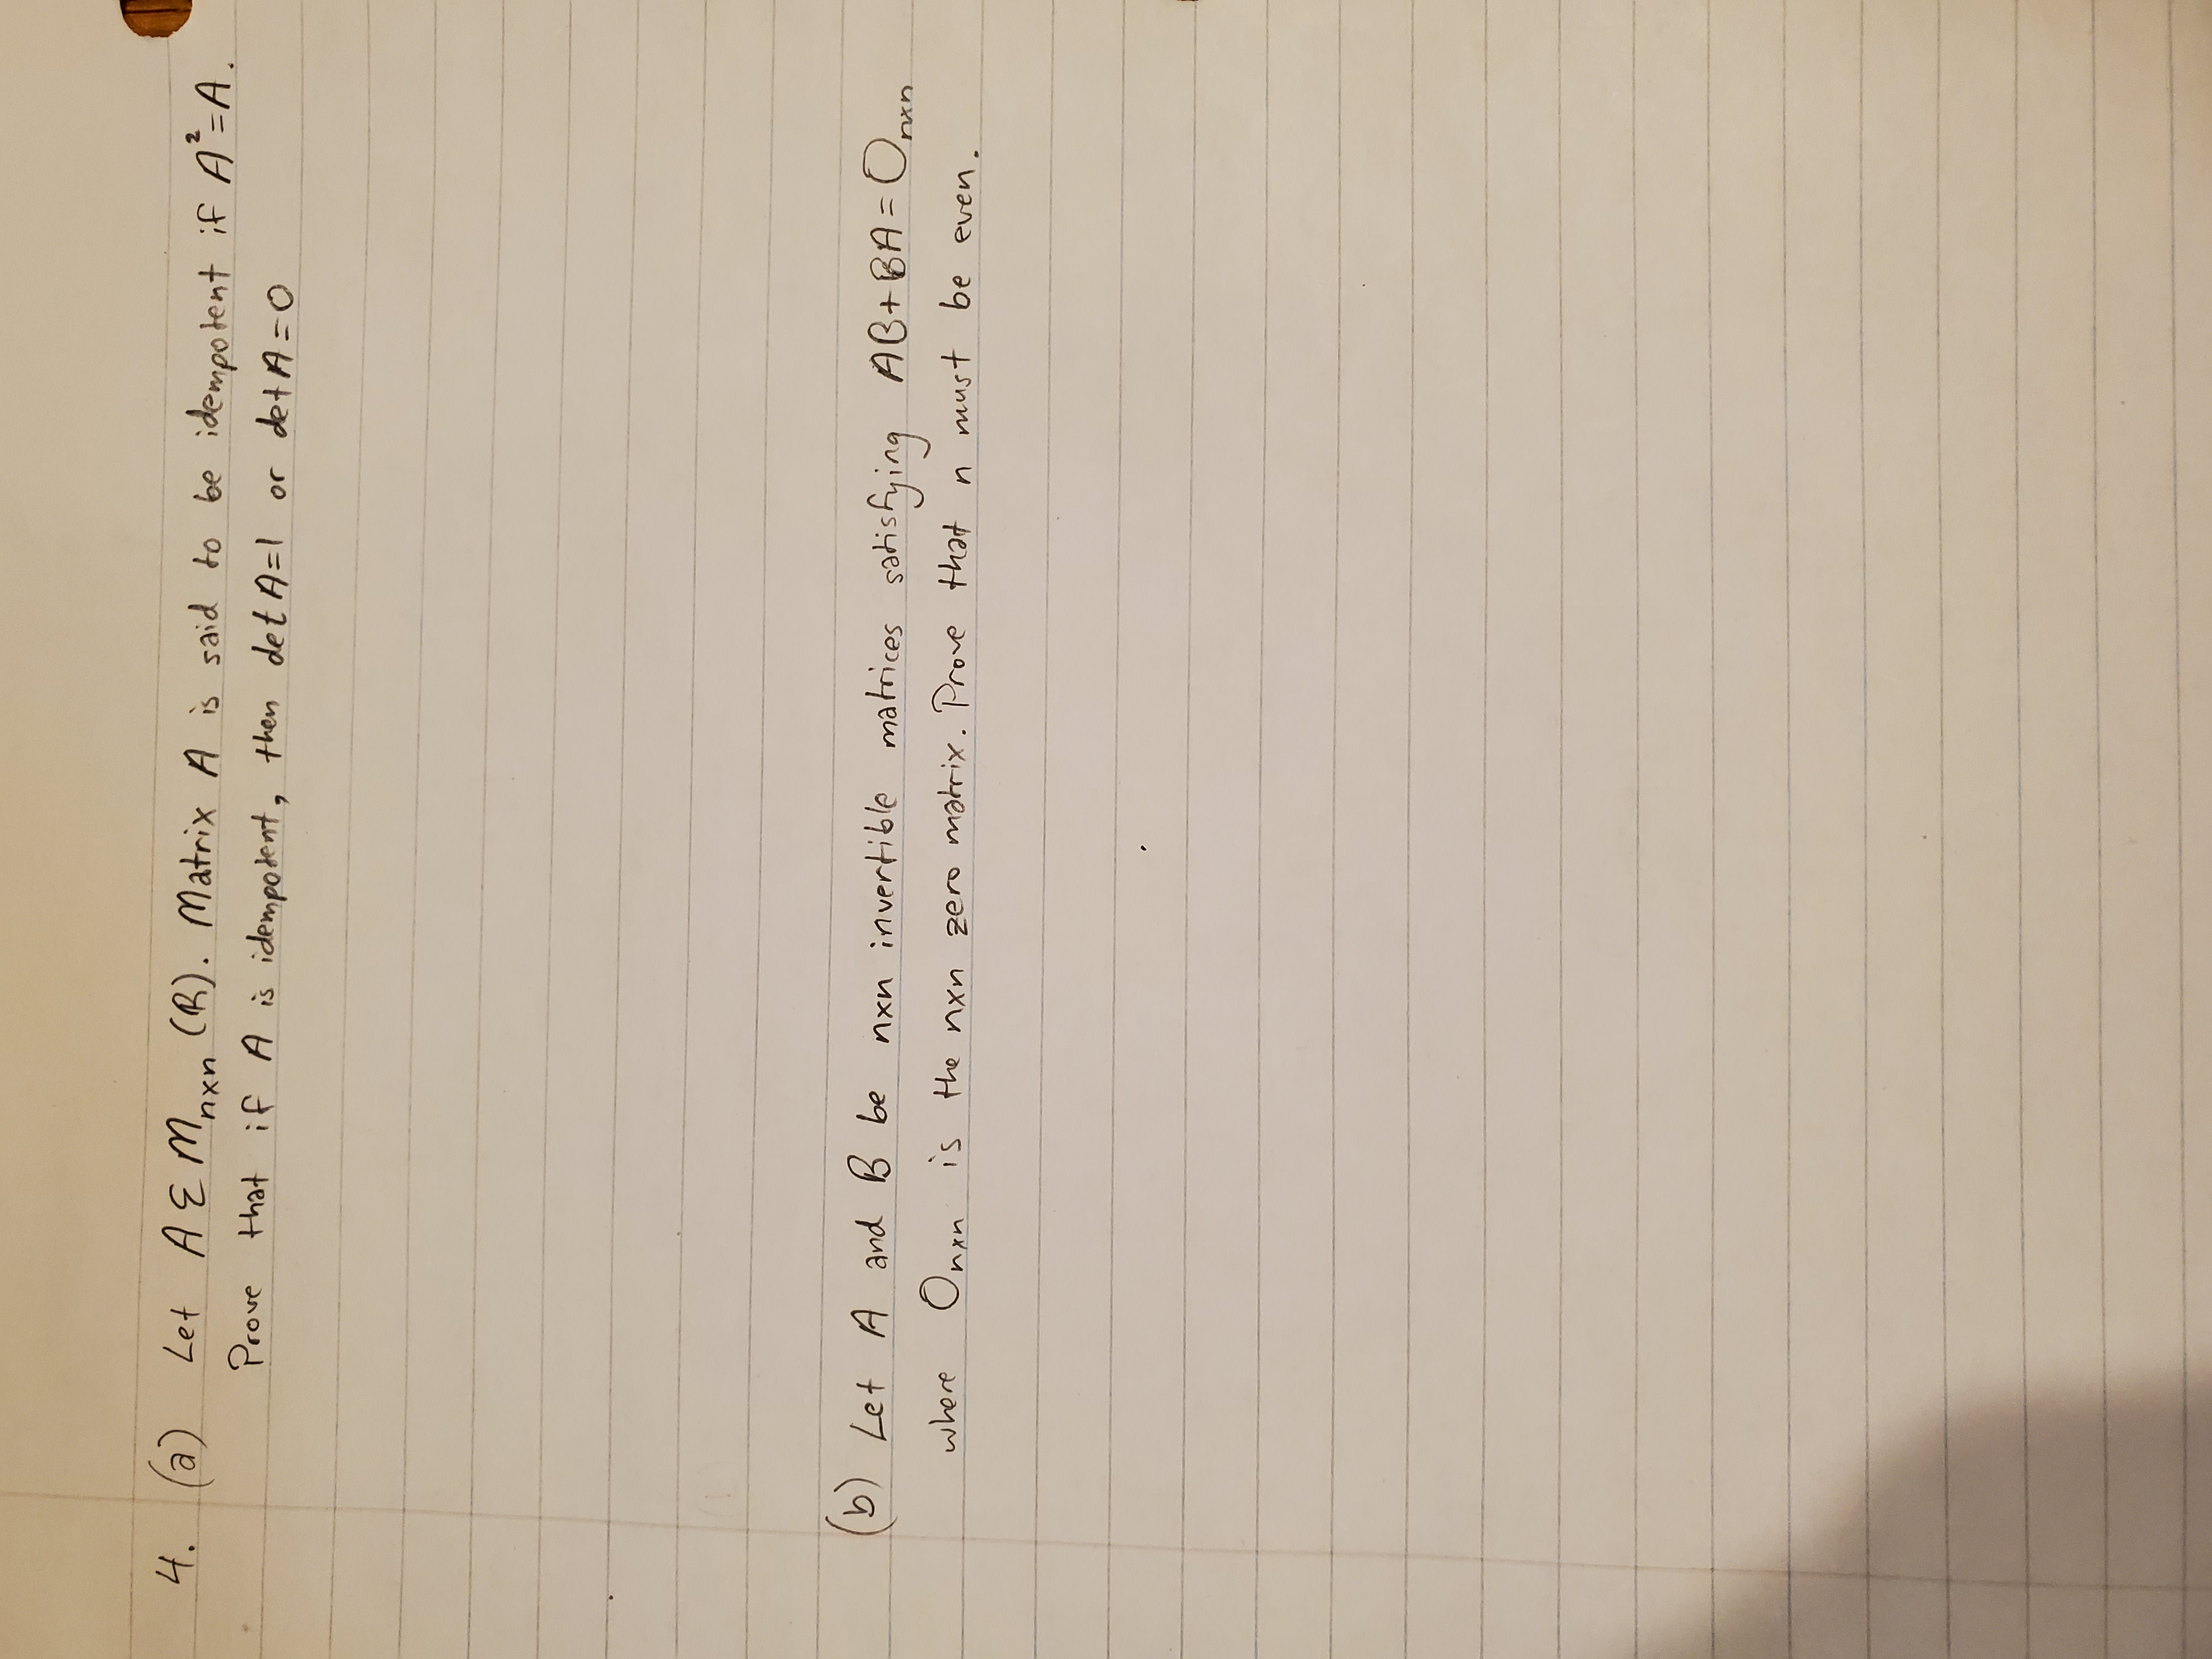 4. (a) Let A ε M_{nxn}(R). Matrix A is said to be idempotent if A²=A.
Prove that if A is idempotent, then det A=1 or det A=0
(b) Let A and B be nxn invertible matrices satisfying AB+BA=O_{nxn}
where O_{nxn} is the nxn zero matrix. Prove that n must be even.